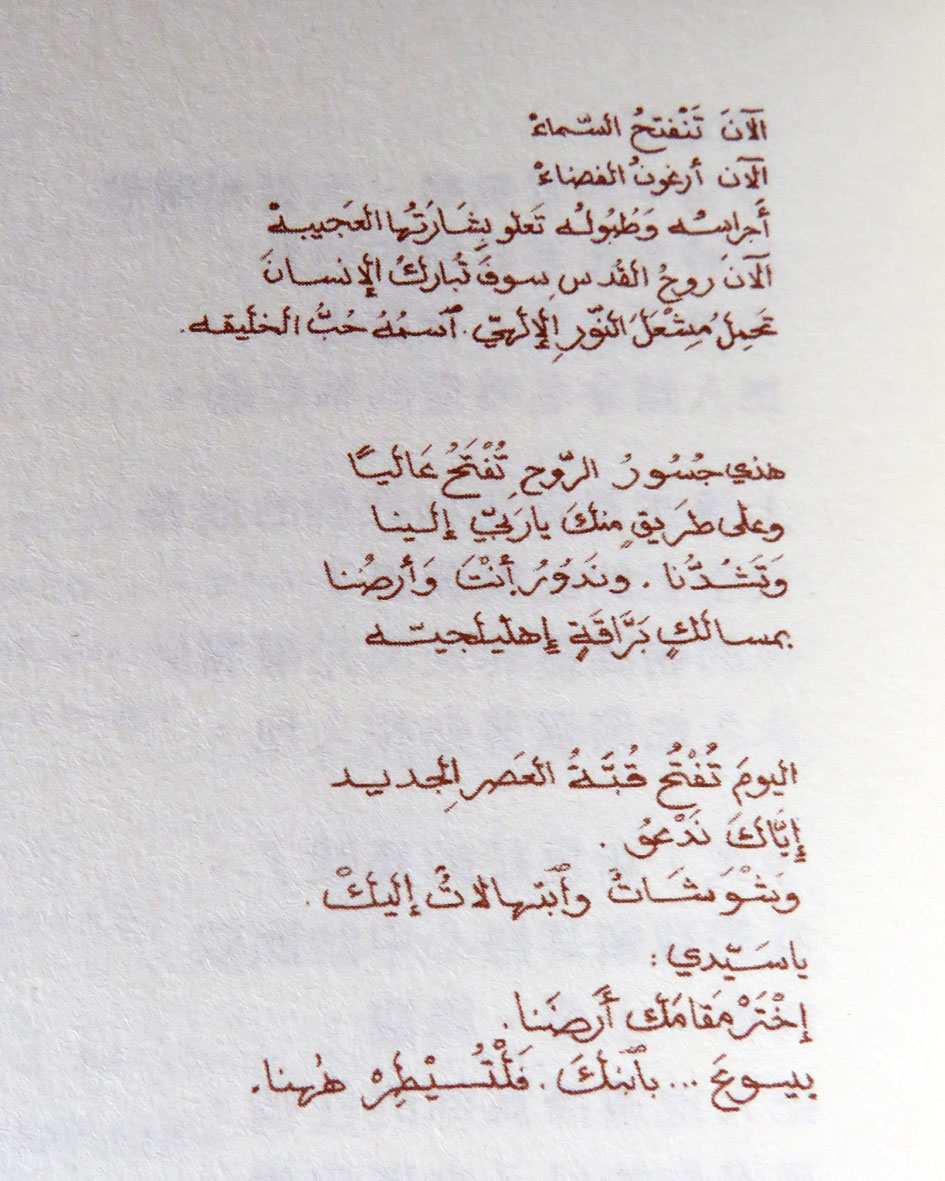 الآنَ تَنْفتحُ السّماءْ
الآن أرغونُ الفضاءْ
أَجراسُه وَطُبُولُه تَعلو بِشَارَتُها العَجيبهْ
الآنَ روحُ القُدسِ سوفَ تُباركُ الإنسانَ
تحمِلُ مِشْعَلَ النّورِ الإلهيّ. ٱسمُهُ حُبُّ الخليقه.
هذي جُسُورُ الرّوحِ تُفْتَحُ عَاليًا
وعلى طَريقٍ مِنكَ ياربّي إلينا
وَتَشُدُّنا . وندَورُ أنتَ وَأرضُنا
بمسالكٍ بَرَّاقَةٍ إهليلجيّه
اليومَ تُفْتَحُ قُبَّةُ العَصرِ الجديد
إيَّاكَ نَدْعوُ .
وَشْوَشَاتٌ وٱبْتهالاتٌ إليكْ .
ياسَيّدي :
إخْتَرْ مَقامَك أَرضَنا .
بيسوعَ ... بٱبنكَ . فَلْتُسَيْطِرْ هٰهنا .